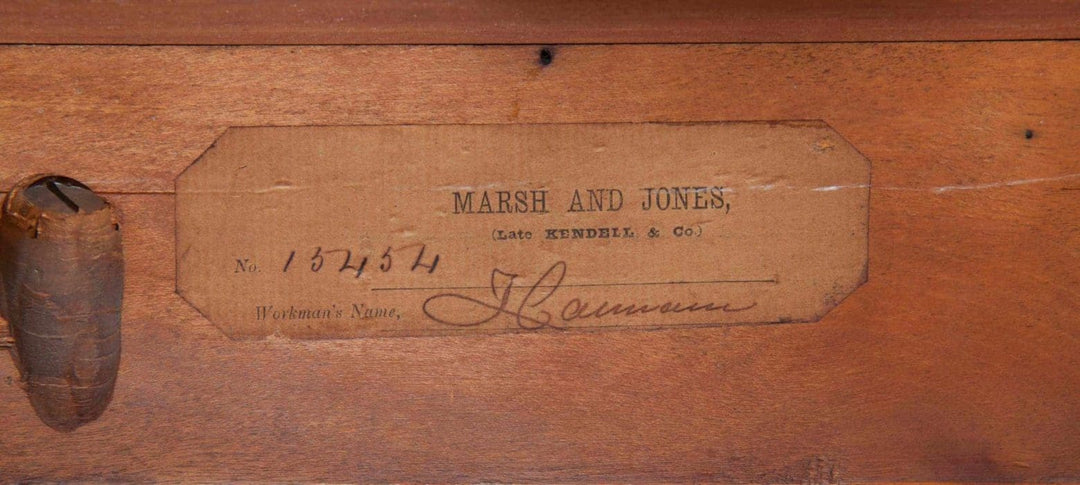 MARSH AND JONES,
(Late KENDELL & Co.)
No. 15454
Workman's Name,